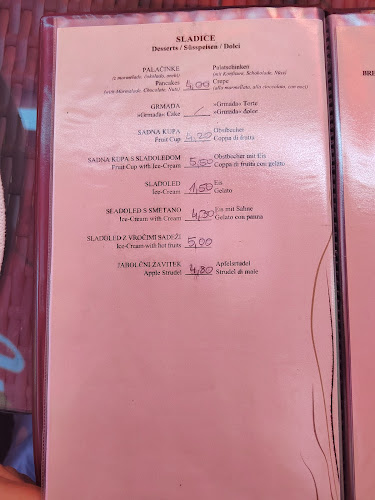 SLADICE
Desserts / Süsspeisen / Dolci
PALAČINKE Palatschinken
(z marmelado, čokolado, orehi) (mit Konfitüre, Schokolade, Nüss)
Pancakes 4,00 Crepe
(with Marmalade, Chocolate, Nuts) (alla marmellata, alla cioccolato, con noci)
GRMADA »Grmada« Torte
»Grmada« Cake / »Grmada« dolce
SADNA KUPA Obstbecher
Fruit Cup 4,20 Coppa di frutta
SADNA KUPA S SLADOLEDOM Obstbecher mit Eis
Fruit Cup with Ice-Cream 5,50 Coppa di frutta con gelato
SLADOLED Eis
Ice-Cream 1,50 Gelato
SLADOLED S SMETANO Eis mit Sahne
Ice-Cream with Cream 4,30 Gelato con panna
SLADOLED Z VROČIMI SADEŽI
Ice-Cream with hot fruits 5,00
JABOLČNI ZAVITEK Apfelstrudel
Apple Strudel 4,80 Strudel di mele